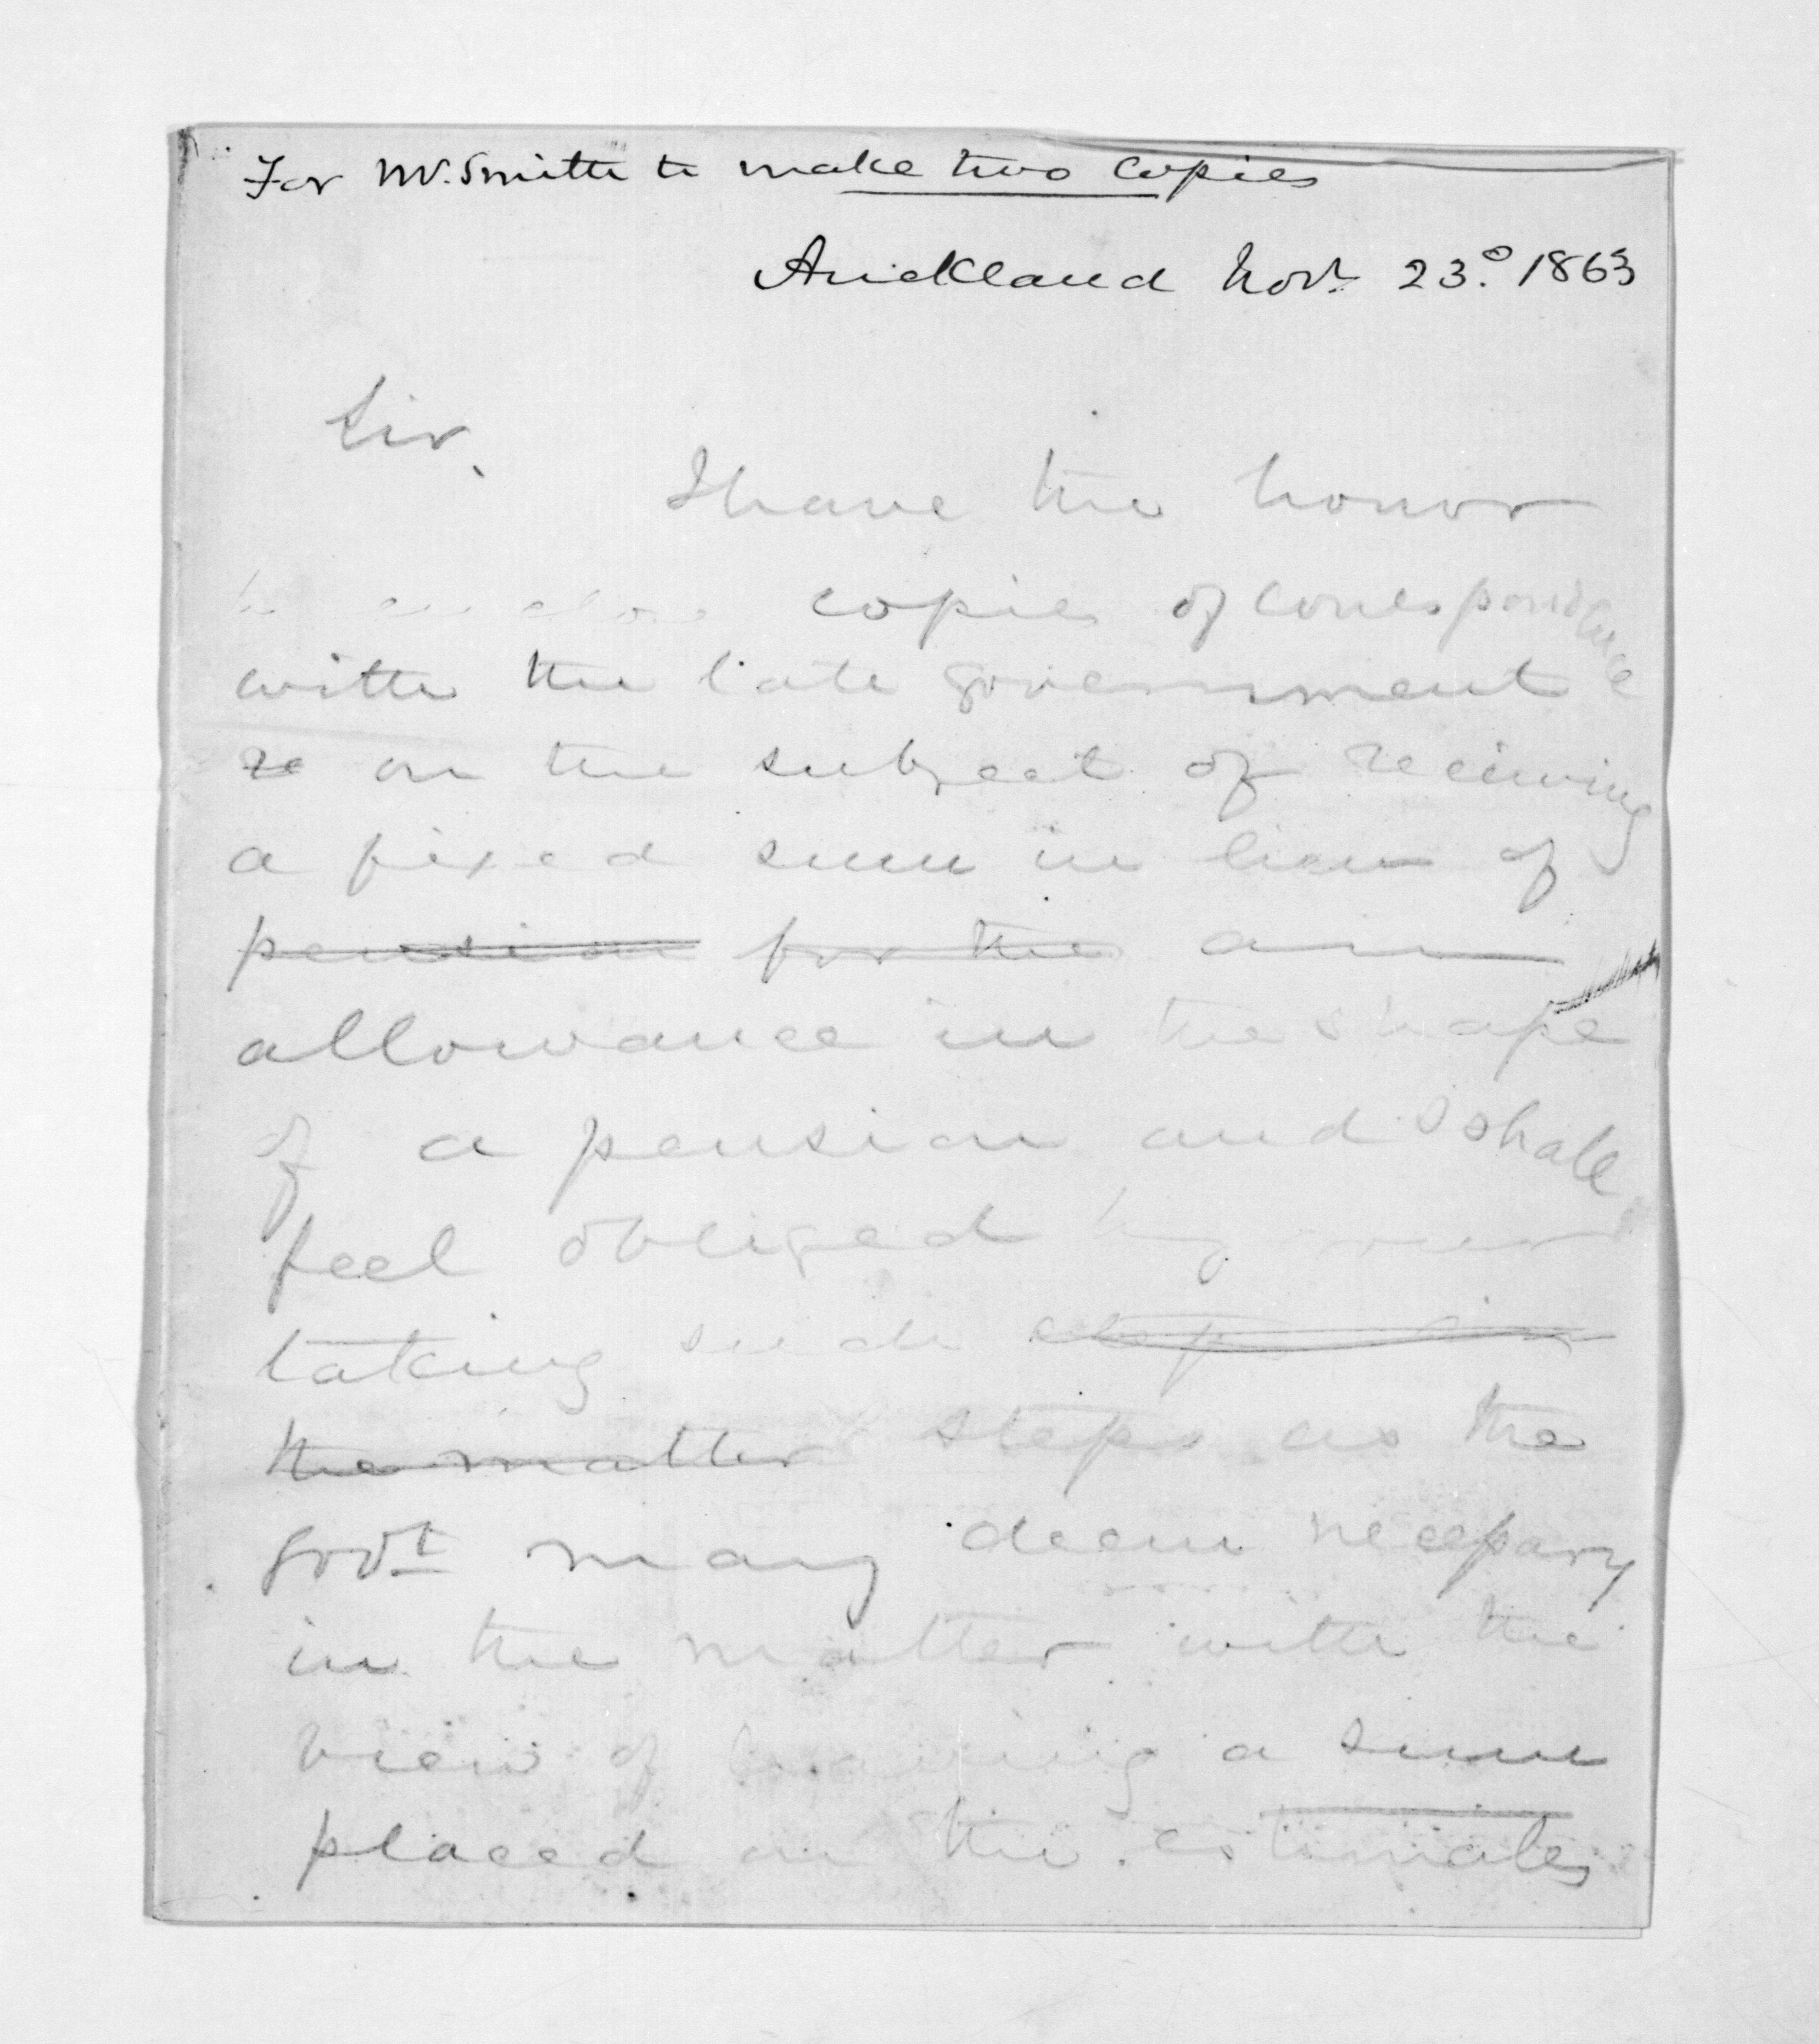 For Mr. Smith to make two copies
Auckland Novr. 23.d 1863
Sir,
I have the honor
to enclose copies of correspondence
with the late government
re on the subject of receiving
a fixed sum in lieu of
pension for the an
allowance in the shape
of a pension and I shall
feel obliged by your
taking such steps in
the matter steps as the
Govt may deem necessary
in the matter with the
view of having a sum
placed on the estimates